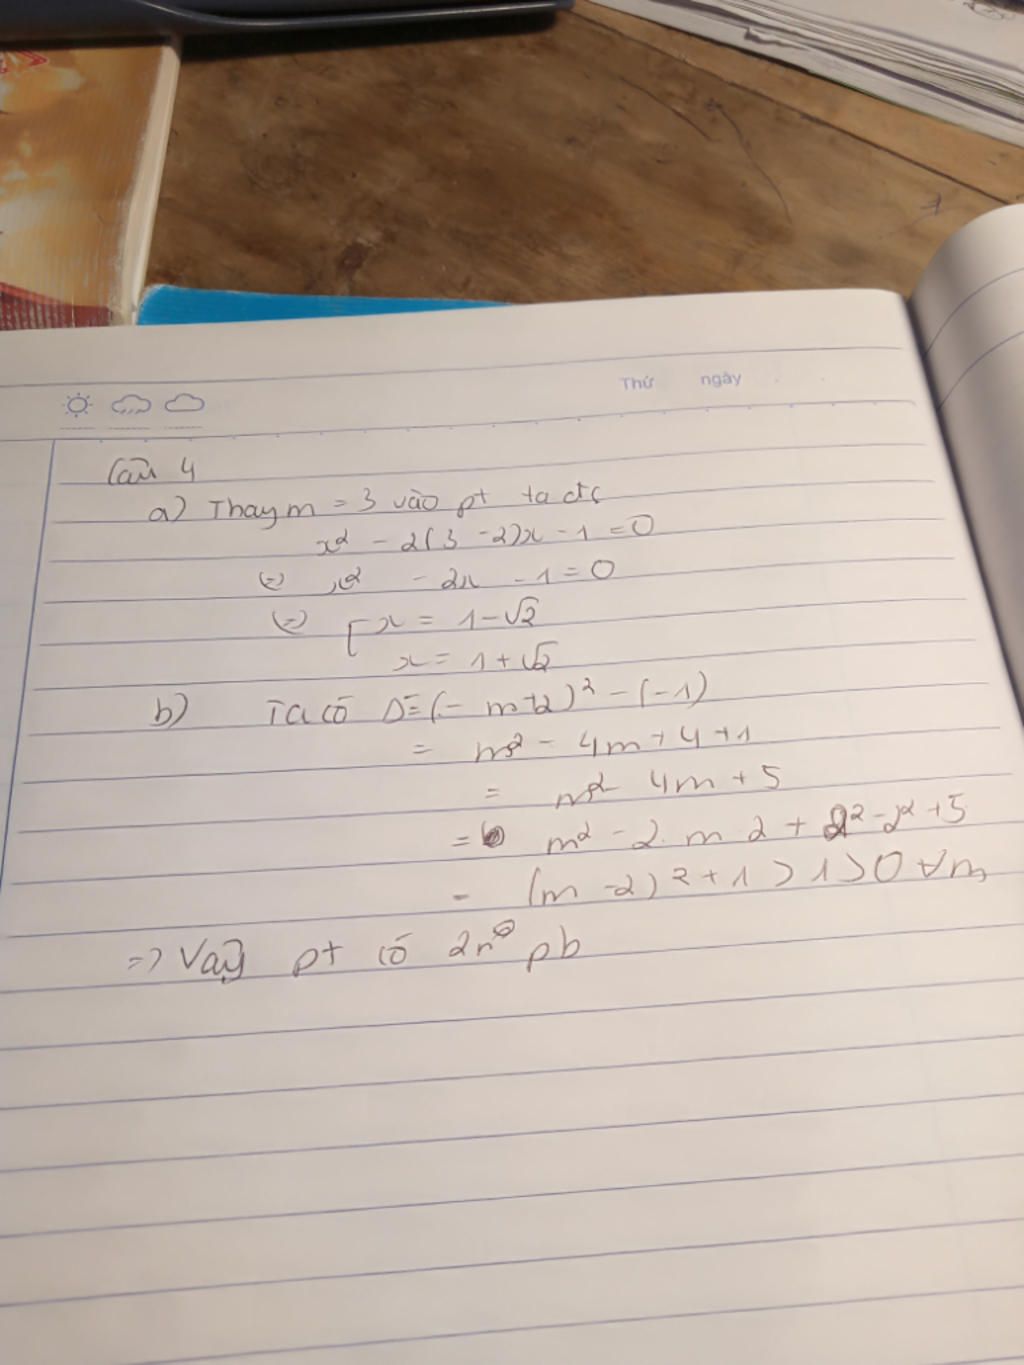 Thứ ngày
Câu 4
a) Thay m = 3 vào pt ta đc
x² - 2(3 - 2)x - 1 = 0
(=) x² - 2x - 1 = 0
(=) [ x = 1 - √2
x = 1 + √2
b) Ta có Δ = (- m + 2)² - (-1)
= m² - 4m + 4 + 1
= m² - 4m + 5
= m² - 2. m 2 + 2² - 2² + 5
= (m - 2)² + 1 > 1 > 0 ∀m
=> Vậy pt có 2n⁰ pb